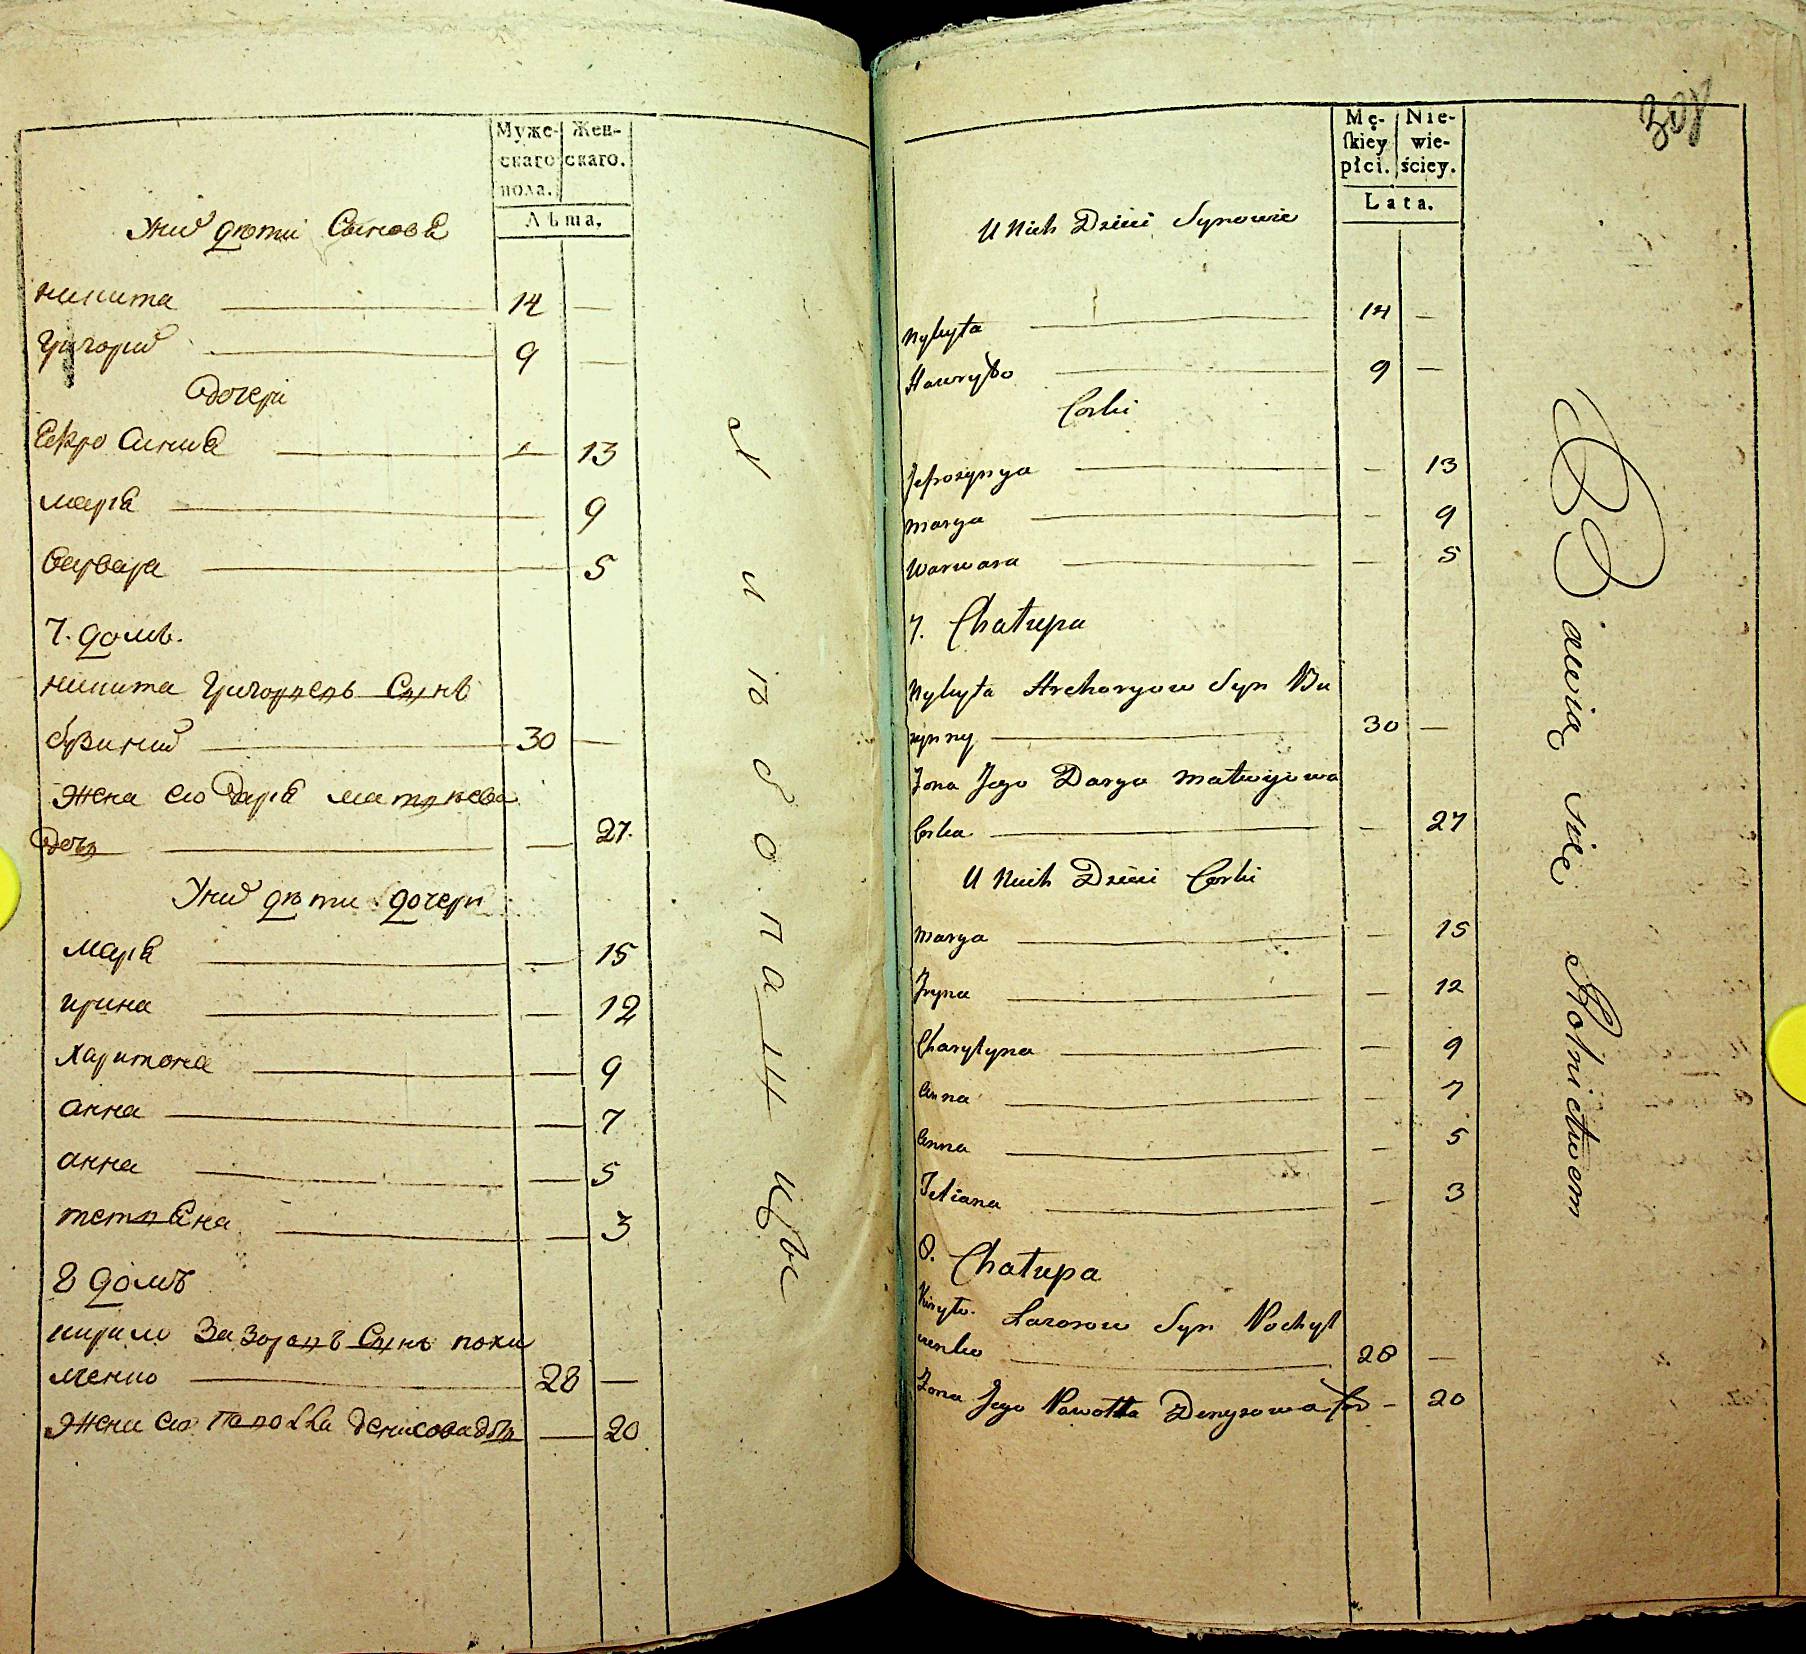 Муже-
скаго
пола.
Жен-
скаго.
Лѣта.
Уних дѣти Синовя
никита 14 —
Григорий 9 —
дочери
Ефросиния — 13
мария — 9
варвара — 5
7. домъ.
никита Григориевъ Синъ
бузиний 30 —
Жена его Дария матвѣева
дочь — 27.
Уних дѣти дочери
мария — 15
ирина — 12
харитона — 9
анна — 7
анна — 5
тетияна — 3
8 домъ
кирило Синъ похи
ленко 28 —
Жена его денисова дочь — 20
Mę-
skiey
płci.
Nie-
wie-
ściey.
Lata.
U Nich Dzieci Synowie
Nykyta 14 —
Hawryło 9 —
Corki
Jefrozynya — 13
Marya — 9
Warwara — 5
7. Chałupa
Nykyta Hrehoryow Syn Bu
zynny 30 —
Zona Jego Darya Matwijowa
Corka — 27
U Nich Dzieci Corki
Marya — 15
Iryna — 12
Charytyna — 9
Anna — 7
Anna — 5
Tetiana — 3
8. Chałupa
Kiryło Lazorow Syn Pochyl
enko 28 —
Zona Jego Denysowa Cor — 20
Bawią się Rolnictwem